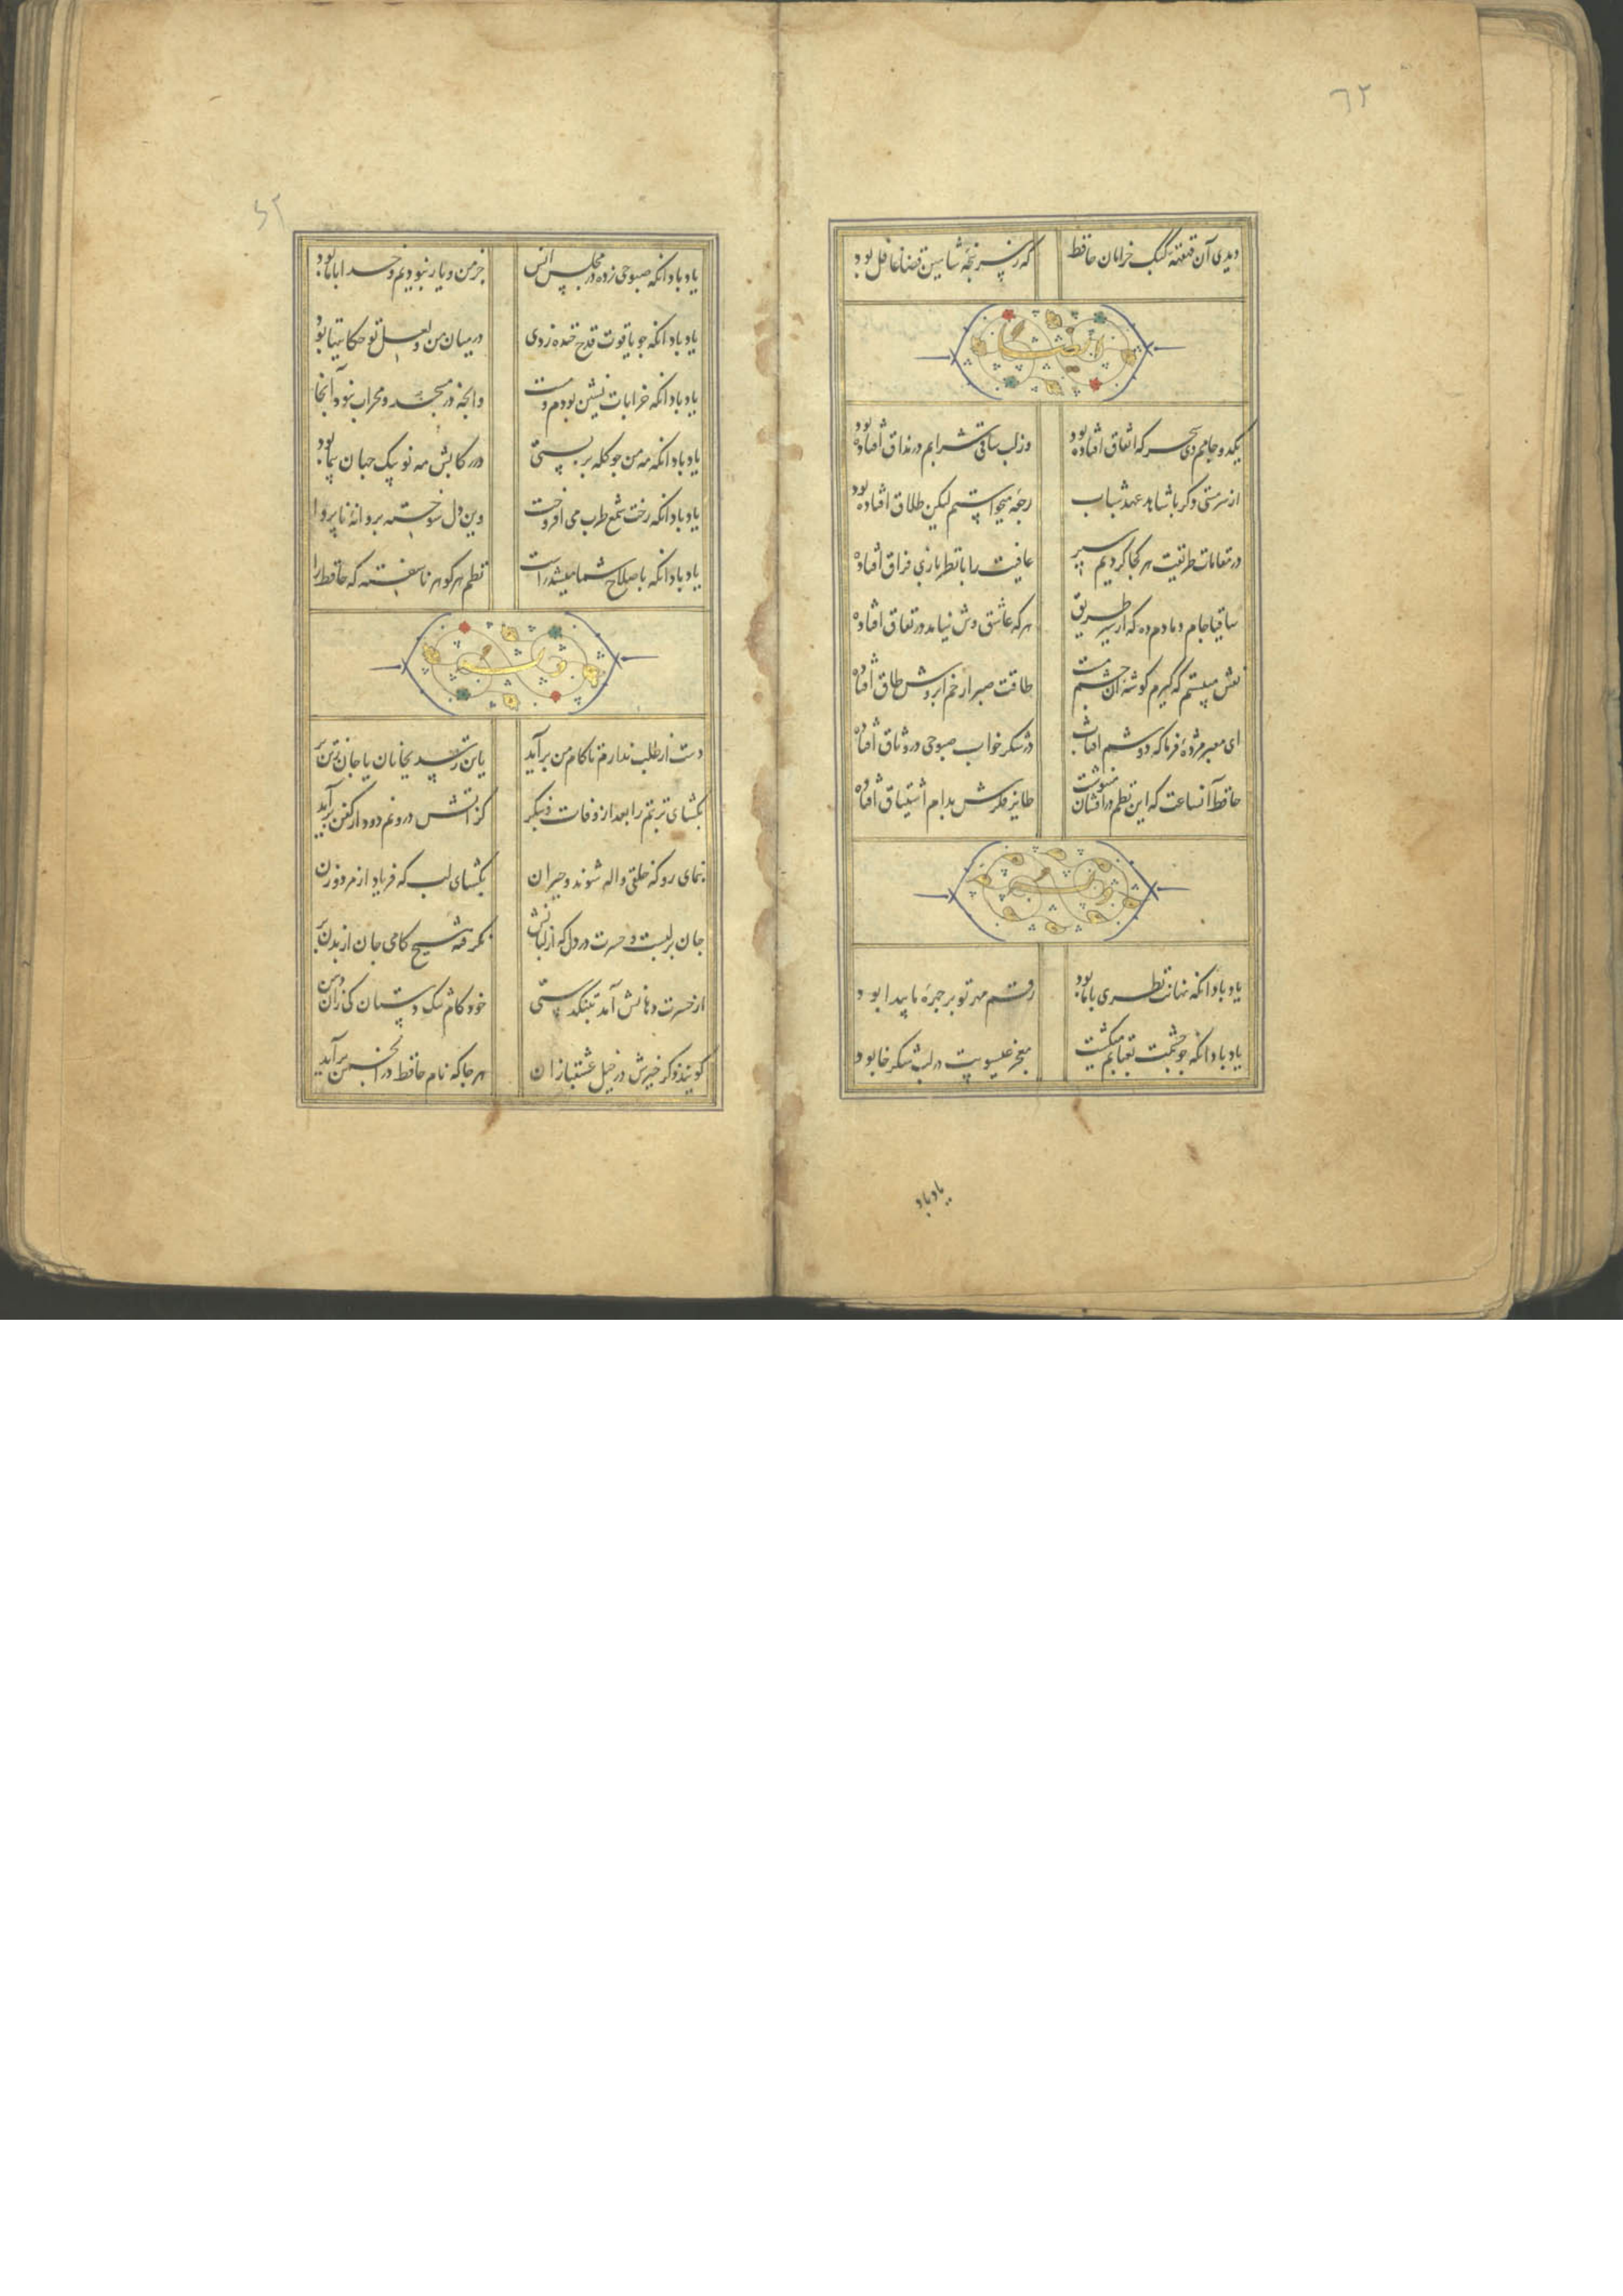 ٦٢
دیدی آن قهقهه کبک خرامان حافظ که ز سر پنجه شاهین قضا غافل بود
ایضا
یکدو جامم دی سحرکه اتفاق افتاده بود وز لب ساقی شرابم در مذاق افتاده بود
از سر مستی دکر با شاهد عهد شباب رجعه میخواستم لیکن طلاق افتاده بود
در مقامات طریقت هر کجا کردیم سیر عافیت را با نظر بازی فراق افتاده
ساقیا جام دمادم ده که از سیر طریق هر که عاشق وش نیامد در نفاق افتاده
نقش میبستم که کیرم کوشه زان چشم مست طاقت صبر از خم ابروش طاق افتاده
ای معبر مژده فرما که دوشم افتاب در شکر خواب صبوحی در وثاق افتاده
حافظ آنساعت که این نظم در افشان مینوشت طایر فکرش بدام اشتیاق افتاده
وله
یاد باد آنکه نهانت نظری با ما بود رقم مهر تو بر چهره ما پیدا بود
یاد باد آنکه جو چشمت بعتابم میکشت معجز عیسویت در لب شکر خا بود
یاد باد
٦٢
یاد باد آنکه صبوحی زده در مجلس انس جز من و یار نبودیم و خدا با ما بود
یاد باد آنکه جو یاقوت قدح خنده زدی در میان من و لعل تو حکایتها بود
یاد باد آنکه خرابات نشین بودم و مست وانجه در مسجد و محراب نبود آنجا
یاد باد آنکه مه من جو کله بر بستی در رکابش مه نو پیک جهان پیما بود
یاد باد آنکه رخت شمع طرب می افروخت وین دل سوخته پروانه ناپروا
یاد باد آنکه باصلاح شما میشد راست نظم هر کوهر ناسفته که حافظ را
وله
دست از طلب ندارم تا کام من برآید یا تن رسد بجانان یا جان ز تن بر
بکشای تربتم را بعد از وفات و بنکر کز آتش درونم دود از کفن برآید
بنمای رو که خلقی واله شوند و حیران بکشای لب که فریاد از مرد و زن
جان بر لبست و حسرت در دل که از لبانش نکرفته هیچ کامی جان از بدن بر
از حسرت دهانش آمد بتنک دستی خود کام تنک دستان کی زان دهن
کویند ذکر خیرش در خیل عشقبازان هر جا که نام حافظ در انجمن برآید